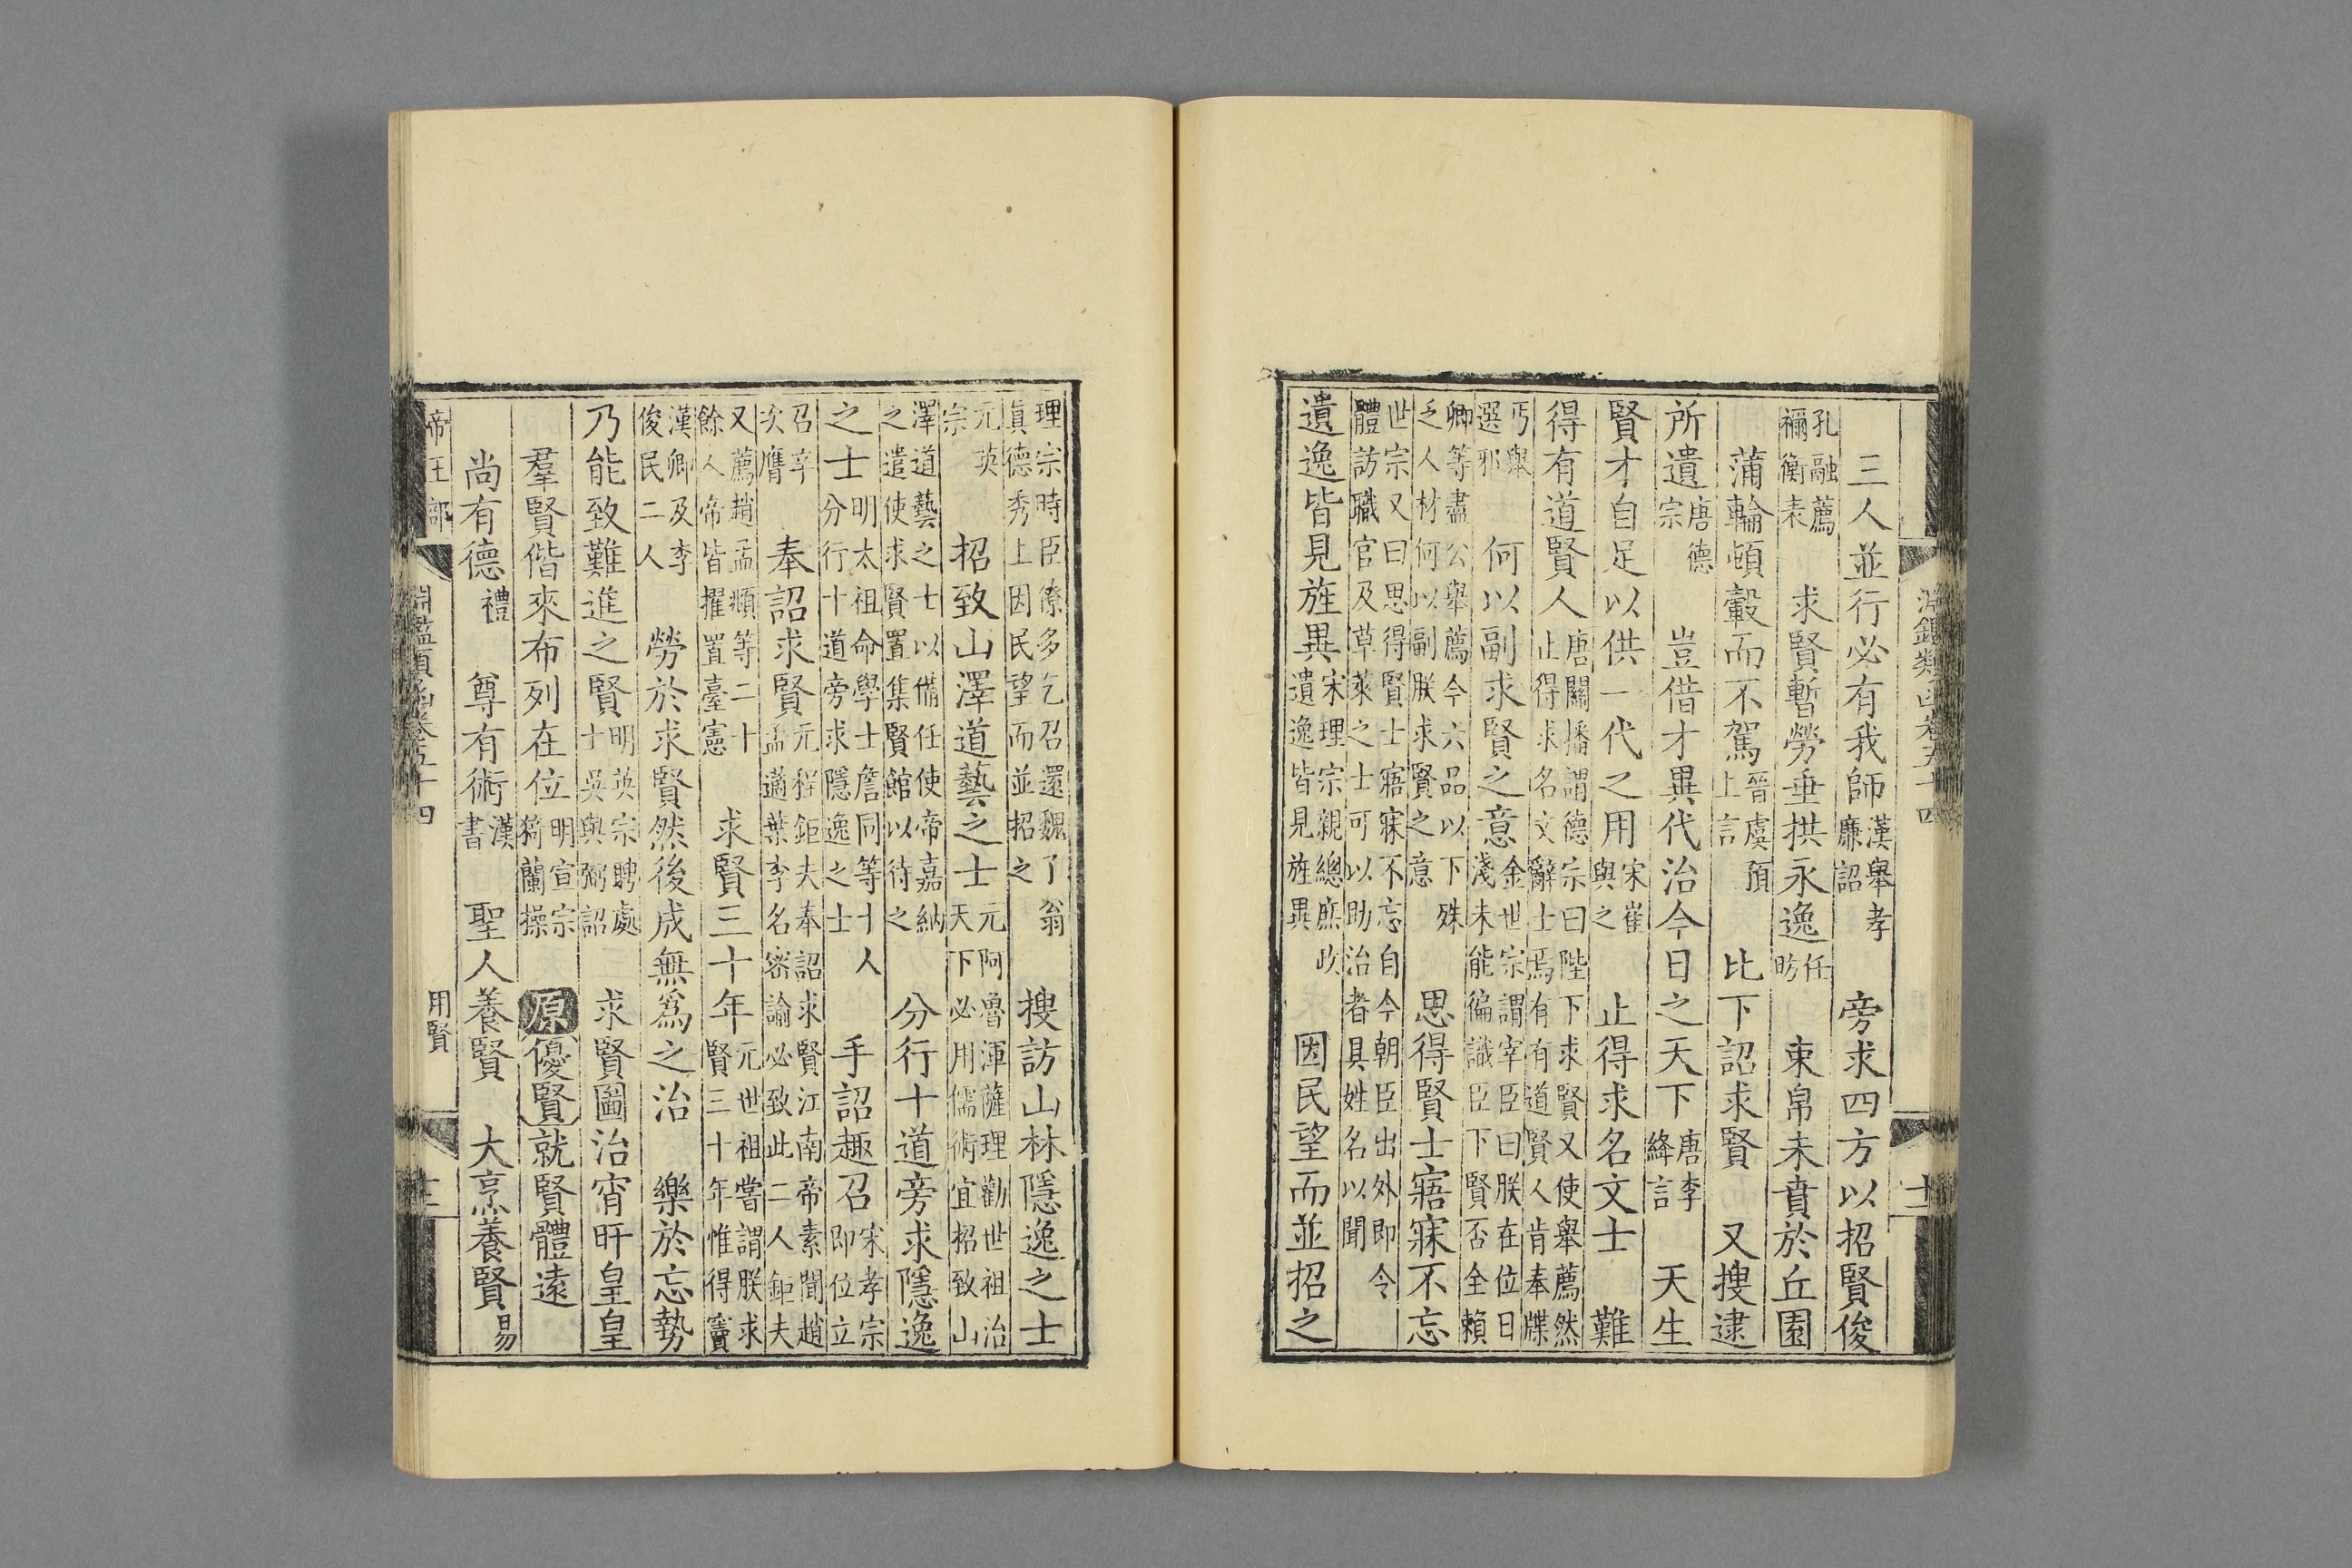 淵鑑類函卷五十四 十二
三人並行必有我師 漢舉孝廉詔 旁求四方以招賢俊
孔融薦禰衡表 求賢暫勞垂拱永逸 任昉 束帛未賁於丘園
蒲輪頓轂而不駕 晉虞預上言 比下詔求賢 又搜逮
所遺 唐德宗 豈借才異代治今日之天下 唐李絳言 天生
賢才自足以供一代之用 宋崔與之 止得求名文士 難
得有道賢人 唐關播謂德宗曰陛下求賢又使舉薦然止得求名文辭士焉有有道賢人肯奉牒
丐舉選邪 何以副求賢之意 金世宗謂宰臣曰朕在位日淺未能徧識臣下賢否全賴
卿等盡公舉薦今六品以下殊乏人材何以副朕求賢之意 思得賢士寤寐不忘
世宗又曰思得賢士寤寐不忘自今朝臣出外即令體訪職官及草萊之士可以助治者具姓名以聞
遺逸皆見旌異 宋理宗親總庶政遺逸皆見旌異 因民望而並招之
理宗時臣僚多乞召還魏了翁真德秀上因民望而並招之 搜訪山林隱逸之士
元英宗 招致山澤道藝之士 元阿魯渾薩理勸世祖治天下必用儒術宜招致山
澤道藝之士以備任使帝嘉納之遣使求賢置集賢館以待之 分行十道旁求隱逸
之士 明太祖命學士詹同等十人分行十道旁求隱逸之士 手詔趣召 宋孝宗即位立
召辛次膺 奉詔求賢 元程鉅夫奉詔求賢江南帝素聞趙孟藡葉李名密諭必致此二人鉅夫
又薦趙孟頫等二十餘人帝皆擢置臺憲 求賢三十年 元世祖嘗謂朕求賢三十年惟得竇
漢卿及李俊民二人 勞於求賢然後成無爲之治 樂於忘勢
乃能致難進之賢 明英宗聘處士吳與弼詔 求賢圖治宵旰皇皇
羣賢偕來布列在位 明宣宗猗蘭操 原 優賢 就賢體遠
尚有德 禮 尊有術 漢書 聖人養賢 大烹養賢 易
帝王部 淵鑑類函卷五十四 用賢 十三